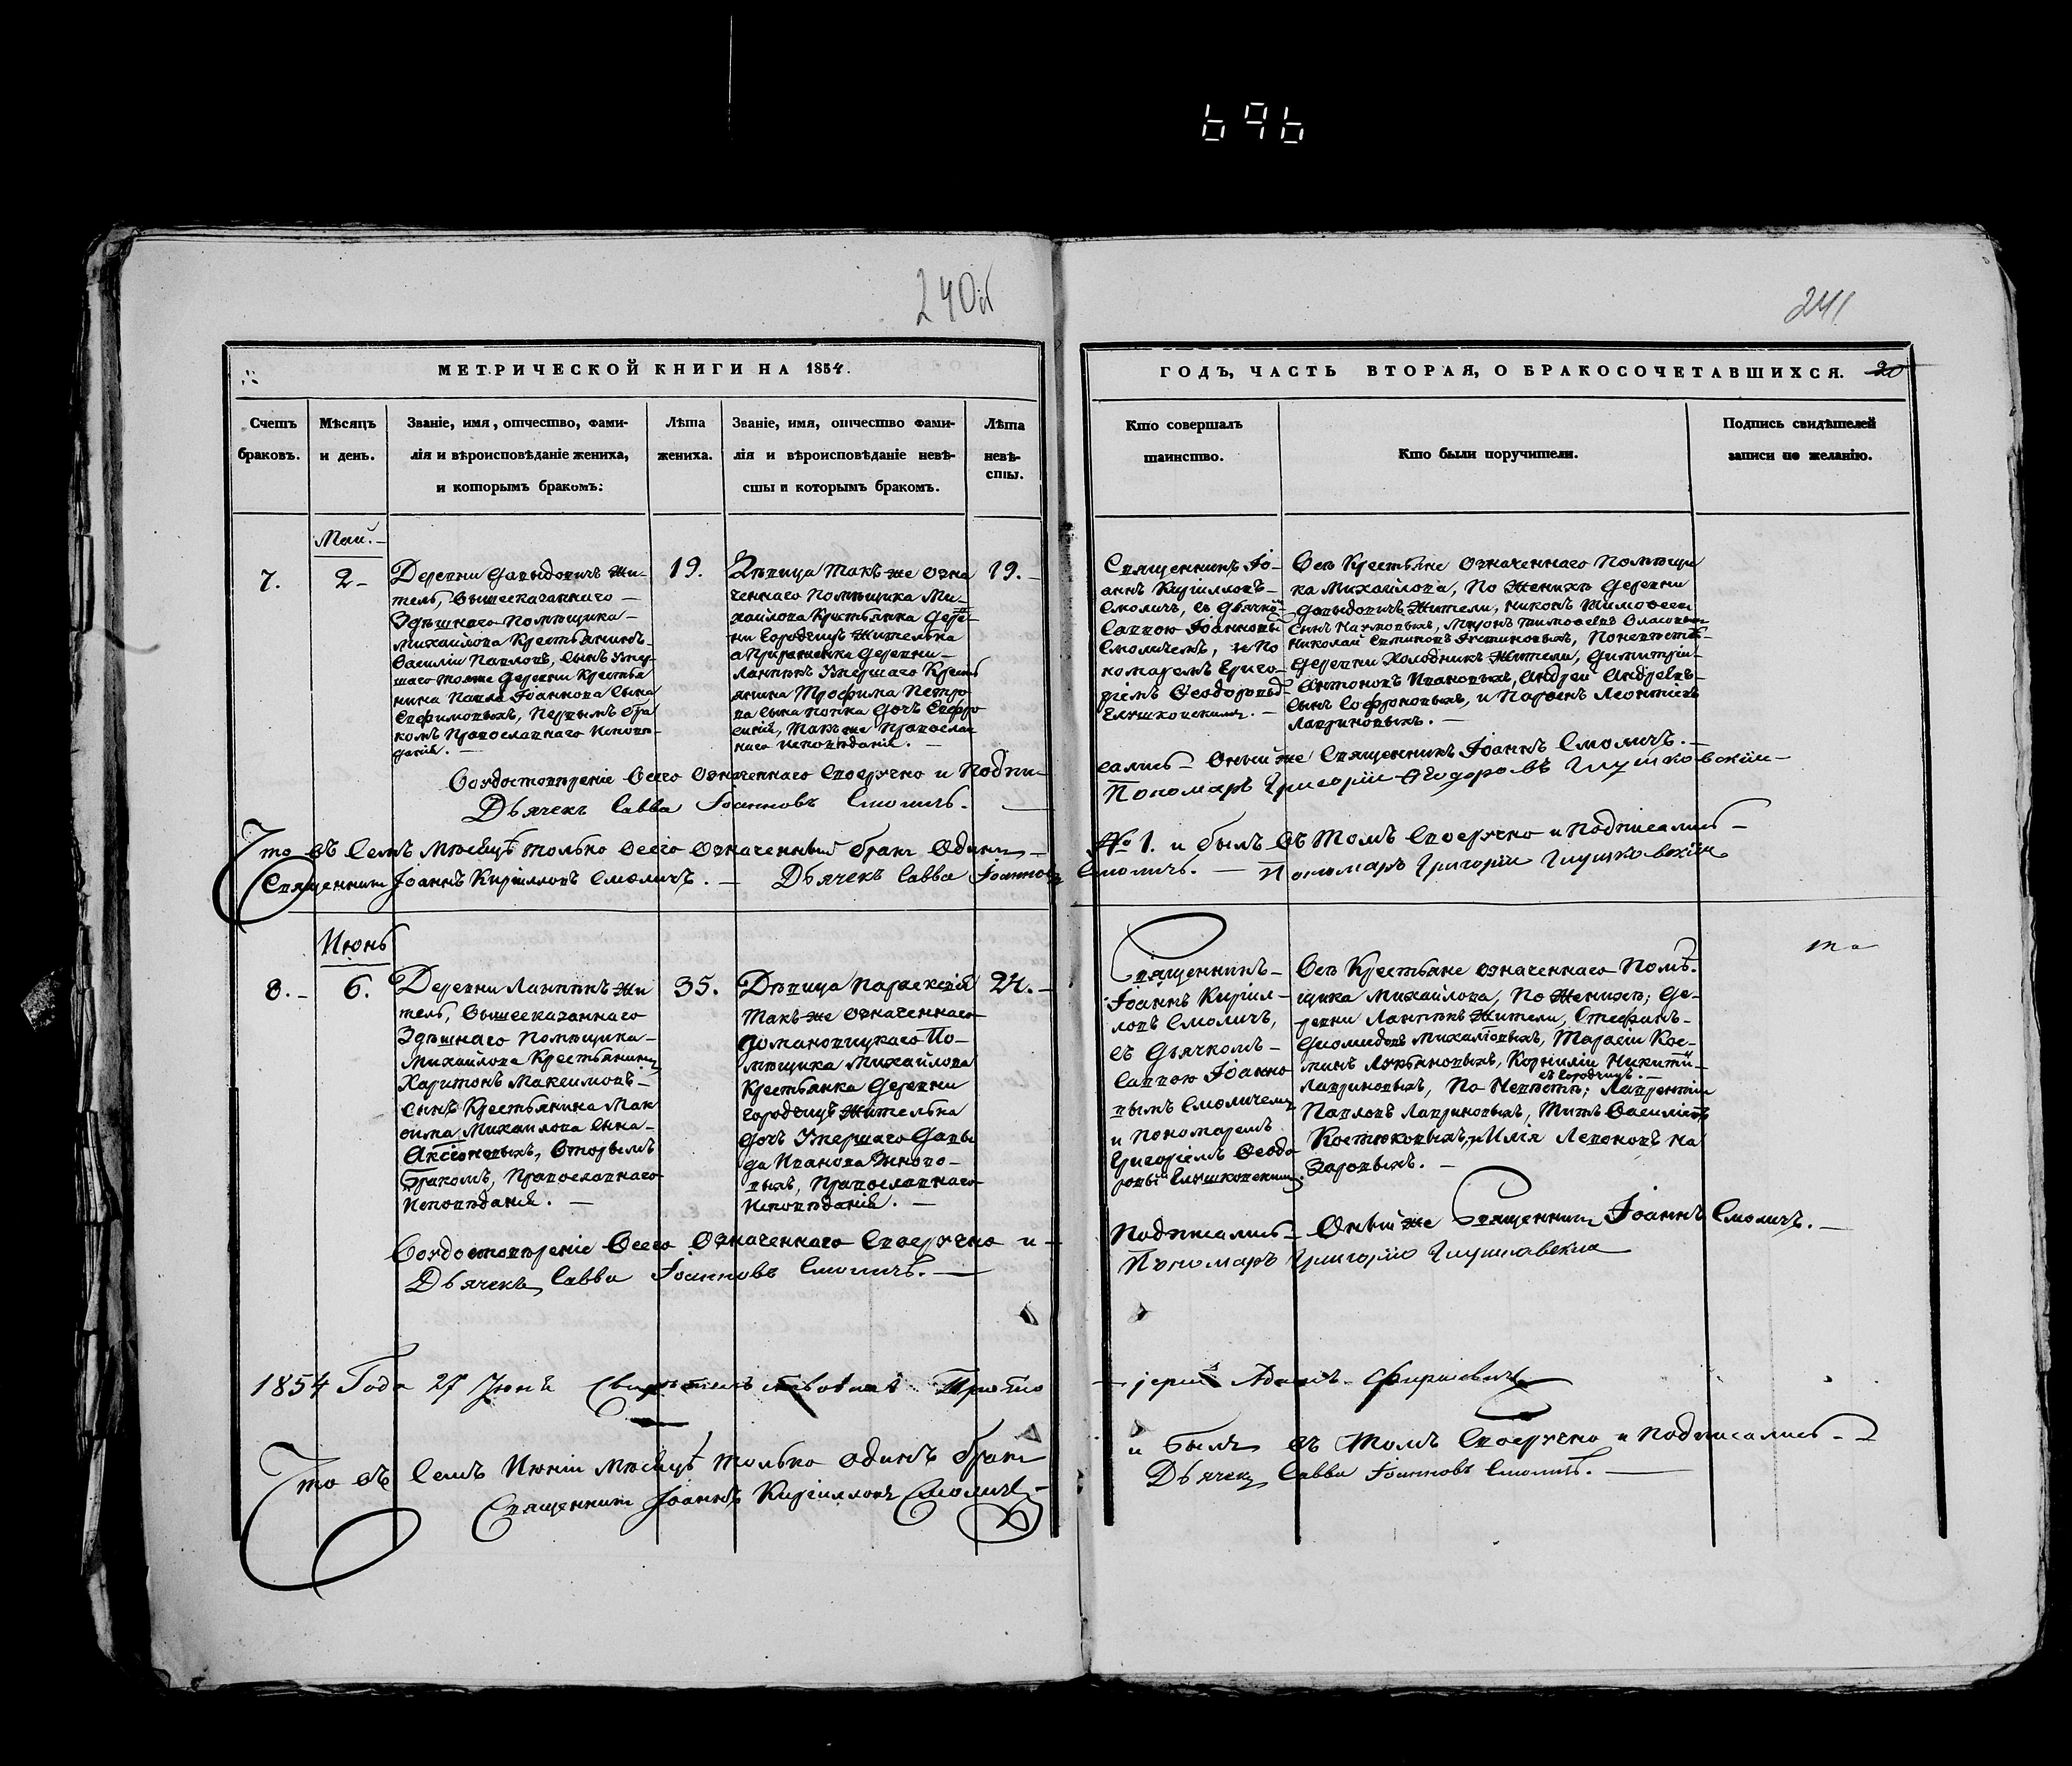 696
240 об
241
МЕТРИЧЕСКОЙ КНИГИ НА 1854.
ГОДЪ, ЧАСТЬ ВТОРАЯ, О БРАКОСОЧЕТАВШИХСЯ. 20
Счетъ браковъ.
Мѣсяцъ и день.
Званіе, имя, отчество, фами-
лія и вѣроисповѣданіе жениха,
и которымъ бракомъ:
Лѣта жениха.
Званіе, имя, отчество фами-
лія и вѣроисповѣданіе невѣ-
сты и которымъ бракомъ.
Лѣта
невѣ-
сты.
Кто совершалъ
таинство.
Кто были поручители.
Подпись свидѣтелей
записи по желанію.
Май.
7.
2
Деревни Давыдовичъ жи-
тель, вышесказаннаго
Здѣшнаго Помѣщика
Михайлова Крестьянинъ
Василій Павловъ, сынъ умер-
шаго тояже деревни крестья
нина Павла Іоаннова сына
Ефимовыхъ, первымъ бра
комъ Православнаго исповѣ-
данія.
19.
Дѣвица такъ же озна
ченнаго Помѣщика Ми-
хайлова Крестьянка дере-
вни Городчицъ жителька
а деревни
Умершаго Крест
янина Трофима Петро
ва сына дочь Евфро
синія, также Православ
наго исповѣданія.
19.
Священникъ Іо-
аннъ Кирилловъ
Смоличъ, съ Дьячкомъ
Саввою Іоанновы
Смоличемъ, и По
номаремъ Григо-
ріемъ Ѳеодоровы
Глушковскимъ.
Всѣ Крестьяне означеннаго Помѣщи
ка Михайлова, По Женихѣ деревни
Давыдовичъ жители, Никонъ Тимоѳеевъ
сынъ Наумовыхъ, Миронъ Тимоѳеевъ Власовыхъ
Николай Устиновыхъ, По невѣстѣ
деревни Холодникъ жители, Димитрій
Антоновъ Ивановыхъ, Андрей Андреевъ
сынъ Софроновыхъ, и Парѳенъ Леонтьевъ
Лавриновыхъ.
Во удостовѣреніе всего означеннаго своеручно и подпи-
сались Оный же Священникъ Іоаннъ Смоличъ.
Дьячекъ Савва Іоанновъ Смоличъ.
Пономаръ Григорій Ѳеодоровъ Глушковскій
Что въ семъ мѣсяцѣ только всего означенный бракъ одинъ
№ 1. и былъ въ томъ своеручно и подписались
Священникъ Іоаннъ Кирилловъ Смоличъ. Дьячекъ Савва Іоанновъ Смоличъ. Пономаръ Григорій Глушковскій
Июнь
8.
6.
Деревни жи
тель, вышесказаннаго
Здѣшнаго Помѣщика
Михайлова Крестьянинъ
Харитонъ Максимовъ
сынъ Крестьянина Мак
сима Михайлова сына
Аксіоновыхъ, вторымъ
бракомъ, Православнаго
исповѣданія.
35.
Дѣвица Параскевія
такъ же означеннаго
Домановицкаго По-
мѣщика Михайлова
Крестьянка деревни
Городчицъ жителька
дочь Умершаго Давы
да Иванова
выхъ, Православнаго
исповѣданія.
24.
Священникъ
Іоаннъ Кирил-
ловъ Смоличъ,
съ Дьячкомъ
Саввою Іоанно
вымъ Смоличемъ
и Пономаремъ
Григоріемъ Ѳеодо
ровы Глушковскимъ.
Всѣ Крестьяне означеннаго Помѣ-
щика Михайлова, По Женихѣ; де-
ревни жители, Стефанъ
Диомидовъ Михайловыхъ, Тарасій Кос-
тинъ Лукьяновыхъ, Корнилій Никитинъ
съ Городчицъ.
Лавриновыхъ, По Невѣстѣ; Лаврентій
Павловъ Лавриновыхъ, Титъ Васильевъ
Костюковыхъ, и Илія Леоновъ На
заровыхъ.
Во удостовѣреніе всего означеннаго своеручно и
подписались Оный же Священникъ Іоаннъ Смоличъ.
Дьячекъ Савва Іоанновъ Смоличъ.
Пономаръ Григорій Глушковскій
1854 Года 27 Іюня Свидѣтельствовалъ Прото
іерей Адамъ
Что въ семъ Июніи мѣсяцѣ только одинъ бракъ
и былъ въ томъ своеручно и подписались
Священникъ Іоаннъ Кирилловъ Смоличъ
Дьячекъ Савва Іоанновъ Смоличъ.